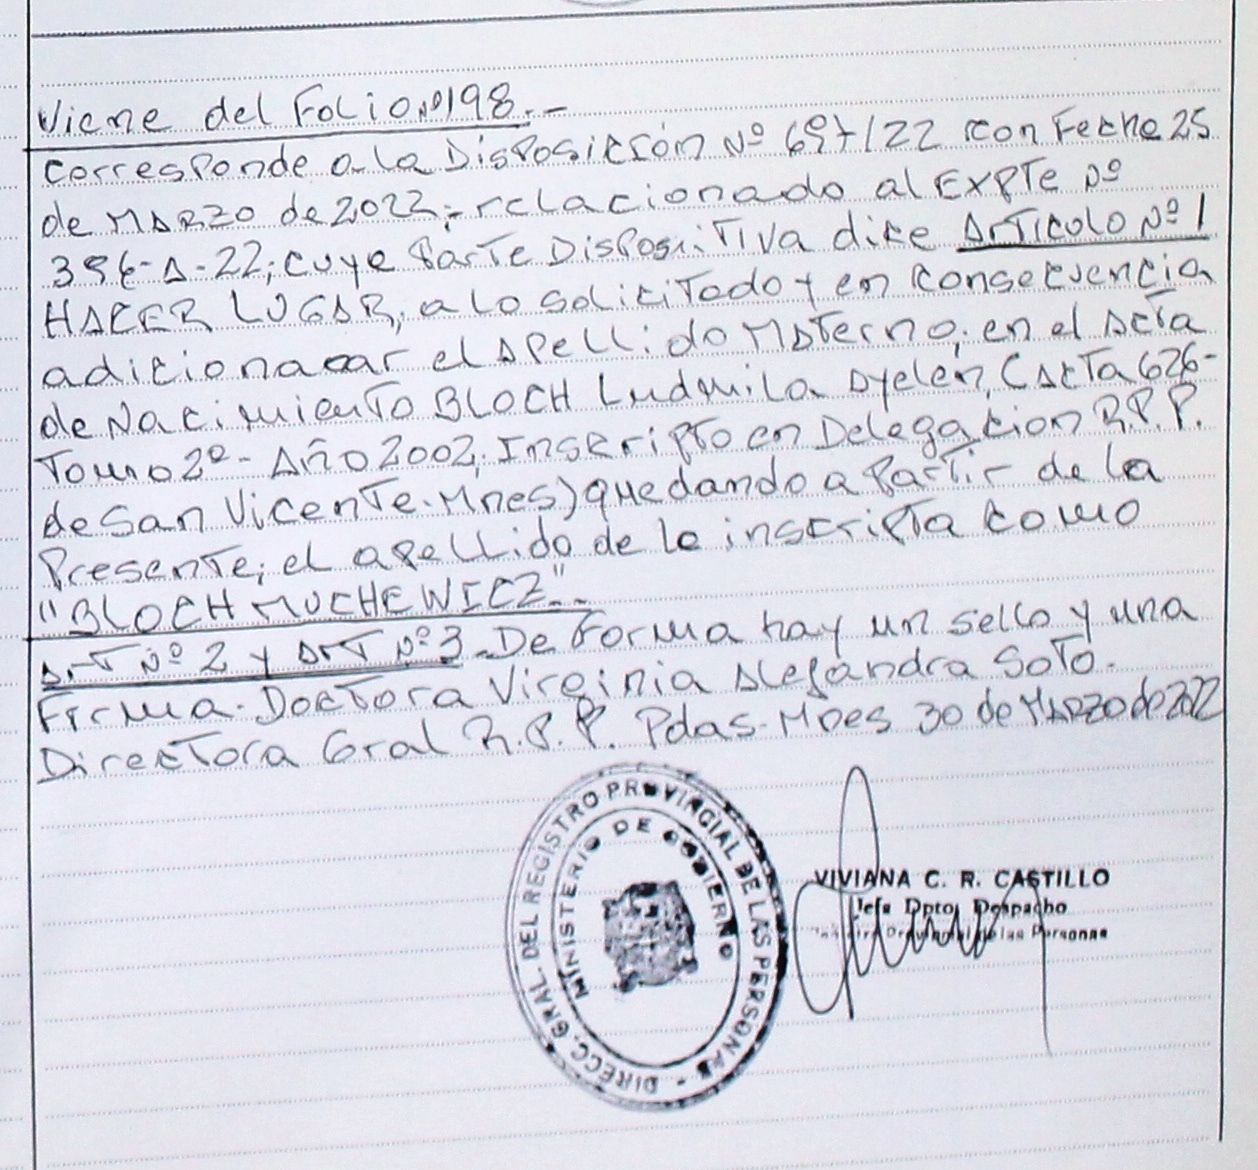 Viene del Folio Nº 198.-
Corresponde a la Disposición Nº 697/22 con Fecha 25
de Marzo de 2022; relacionado al Expte Nº
396-A-22; cuya Parte Dispositiva dice Articulo Nº 1
HACER LUGAR, a lo solicitado y en consecuencia
adicionaoar el Apellido Materno, en el Acta
de Nacimiento BLOCH Ludmila Ayelén, (Acta 626-
Tomo 2º- Año 2002, Inscripto en Delegacion R.P.P.
de San Vicente-Mnes) quedando a Partir de la
Presente, el apellido de la inscripta como
"BLOCH MUCHEWICZ"..
Art Nº 2 y Art Nº 3. De Forma hay un sello y una
Firma. Doctora Virginia Alejandra Soto.
Directora Gral R.P.P. Pdas-Mnes 30 de Marzo de 2022
DIRECC. GRAL. DEL REGISTRO PROVINCIAL DE LAS PERSONAS -
MINISTERIO DE GOBIERNO
VIVIANA C. R. CASTILLO
Jefa Dpto. Despacho
Provincial de las Personas